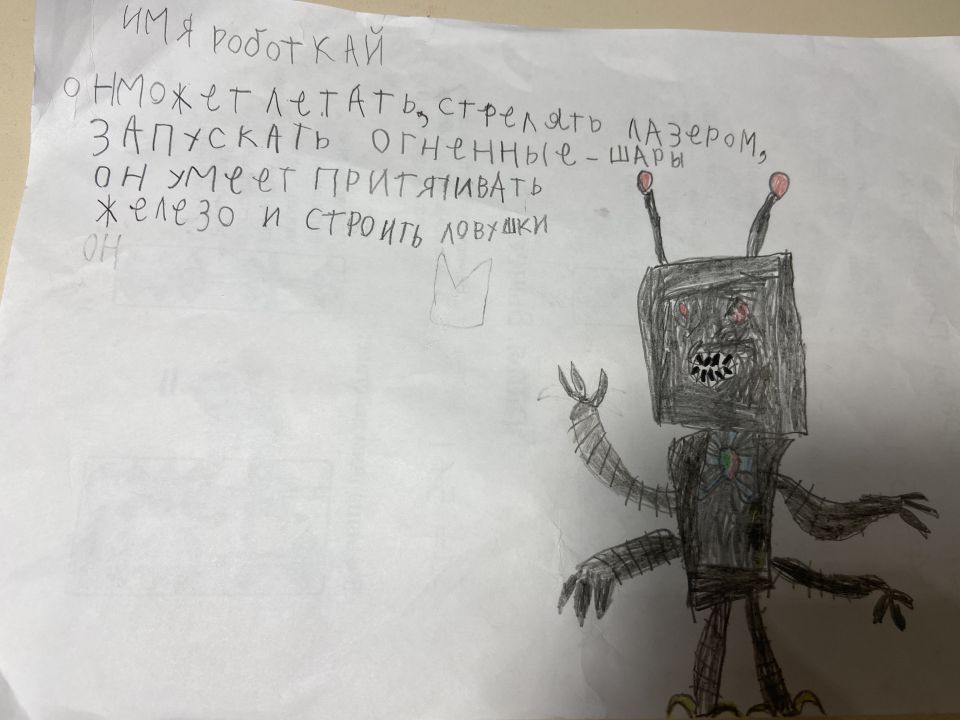 ИМЯ РОБОТ КАЙ
ОНМОЖЕТ ЛЕТАТЬ, СТРЕЛЯТЬ ЛАЗЕРОМ,
ЗАПУСКАТЬ ОГНЕННЫЕ-ШАРЫ
ОН УМЕЕТ ПРИТЯГИВАТЬ
ЖЕЛЕЗО И СТРОИТЬ ЛОВУШКИ
ОН